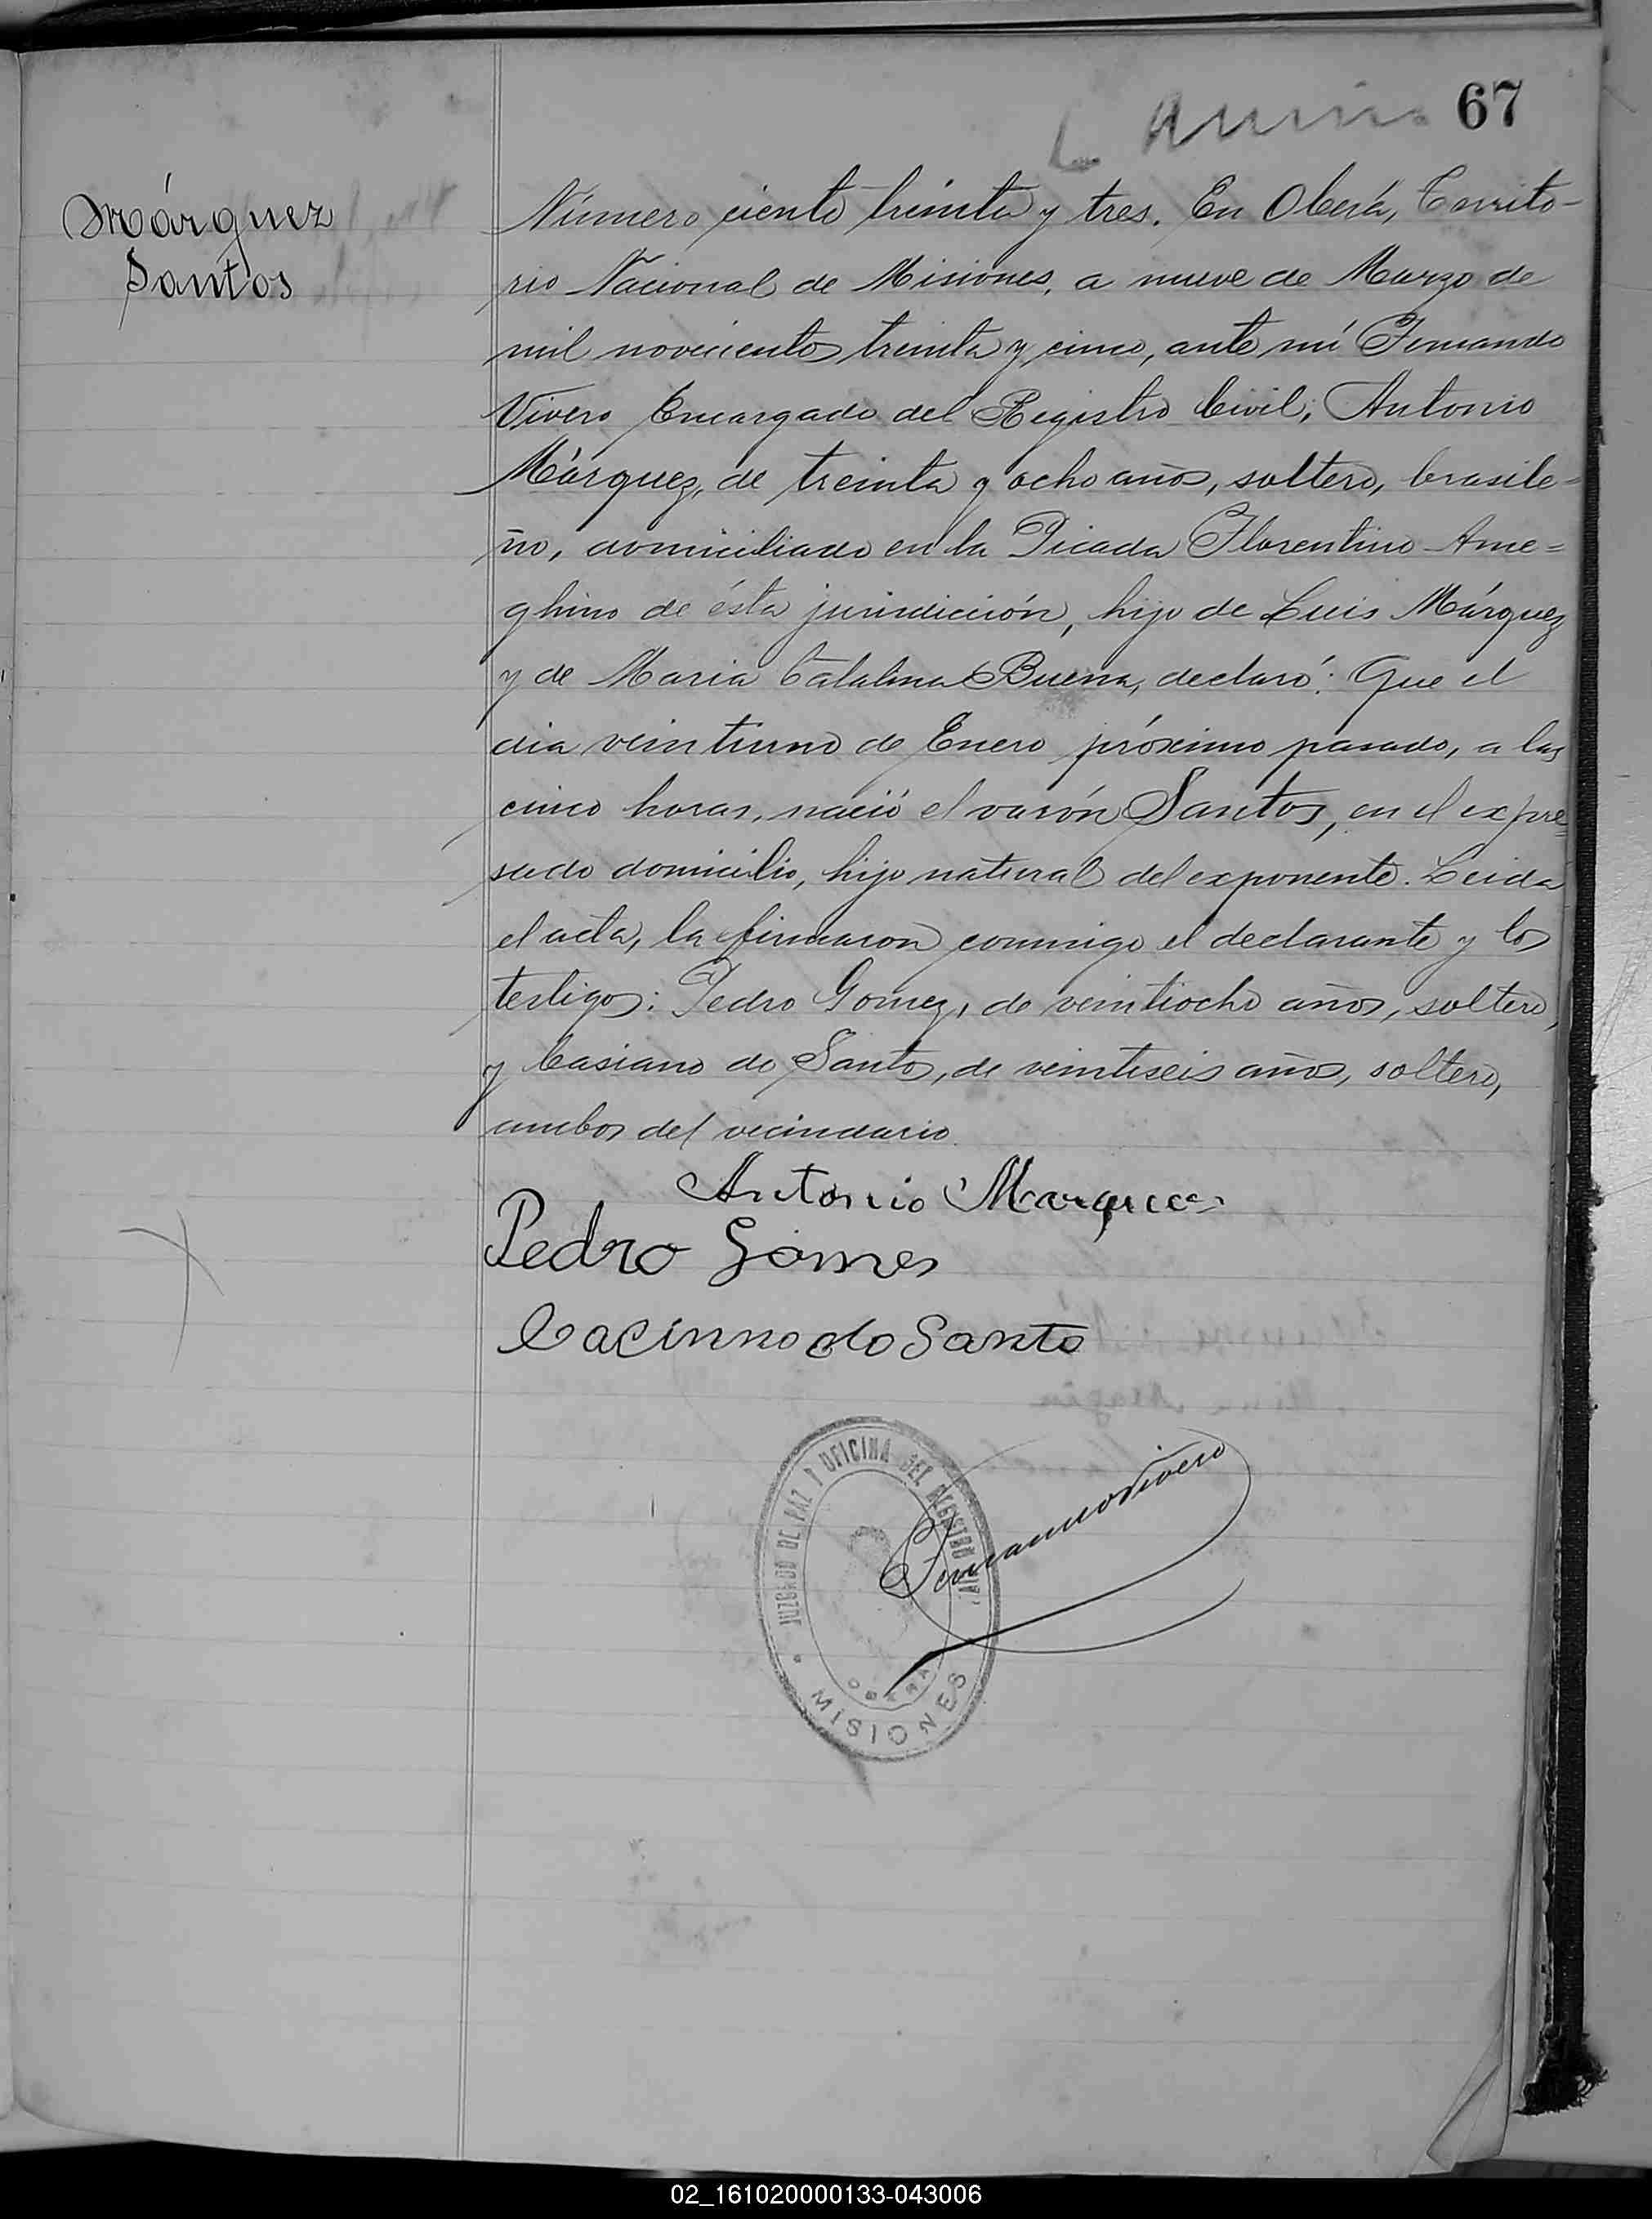 67
Márquez
Santos
Número ciento treinta y tres. En Oberá, Territo-
rio Nacional de Misiones, a nueve de Marzo de
mil novecientos treinta y cinco, ante mí Fernando
Vivero Encargado del Registro Civil, Antonio
Márquez, de treinta y ocho años, soltero, brasile=
ño, domiciliado en la Picada Florentino Ame=
ghino de ésta jurisdicción, hijo de Luis Márquez
y de Maria Catalina Buena, declaró: Que el
dia veintiuno de Enero próximo pasado, a las
cinco horas, nació el varón Santos, en el expre=
sado domicilio, hijo natural del exponente. Leida
el acta, la firmaron conmigo el declarante y los
testigos: Pedro Gomez, de veintiocho años, soltero,
y Casiano do Santos, de veintiseis años, soltero,
ambos del vecindario.
Antonio Marques
Pedro Gomes
Cacinno do Santo
Fernando Vivero
JUZGADO DE PAZ Y OFICINA DEL REGISTRO CIVIL
OBERA
MISIONES
02_161020000133-043006